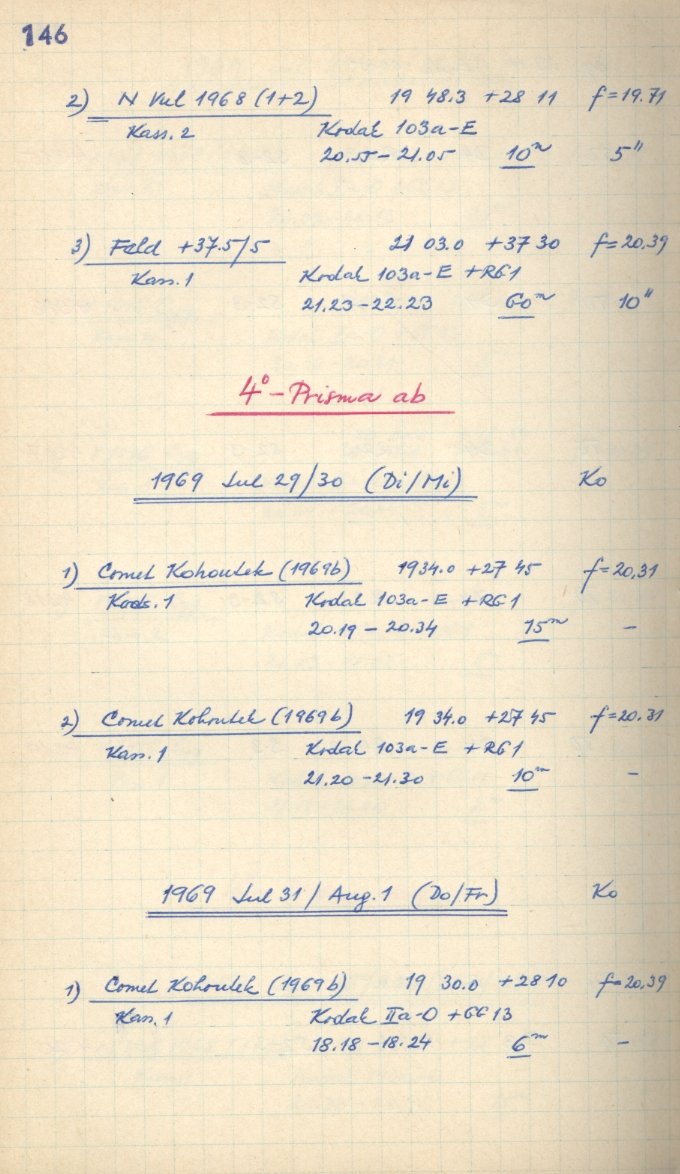 146
2) N Vul 1968 (1+2) 19 48.3 +28 11 f=19.71
Kass. 2 Kodak 103a-E
20.55-21.05 10m 5"
3) Feld +37.5/5 21 03.0 +37 30 f=20,39
Kass. 1 Kodak 103a-E +RG1
21.23-22.23 60m 10"
4°-Prisma ab
1969 Jul 29/30 (Di/Mi) Ko
1) Comet Kohoutek (1969b) 1934.0 +27 45 f=20,31
Kass. 1 Kodak 103a-E +RG1
20.19-20.34 15m -
2) Comet Kohoutek (1969b) 19 34.0 +27 45 f=20.31
Kass. 1 Kodak 103a-E +RG1
21.20-21.30 10m -
1969 Jul 31/Aug. 1 (Do/Fr) Ko
1) Comet Kohoutek (1969b) 19 30.0 +28 10 f=20,39
Kass. 1 Kodak IIa-O +GG 13
18.18-18.24 6m -